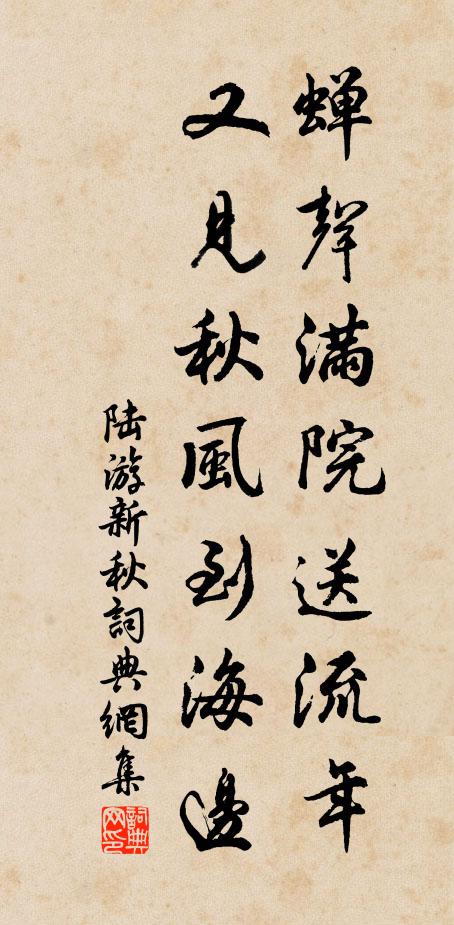 蟬聲滿院送流年
又見秋風到海邊
陸游新秋詞典網集
詞典网印